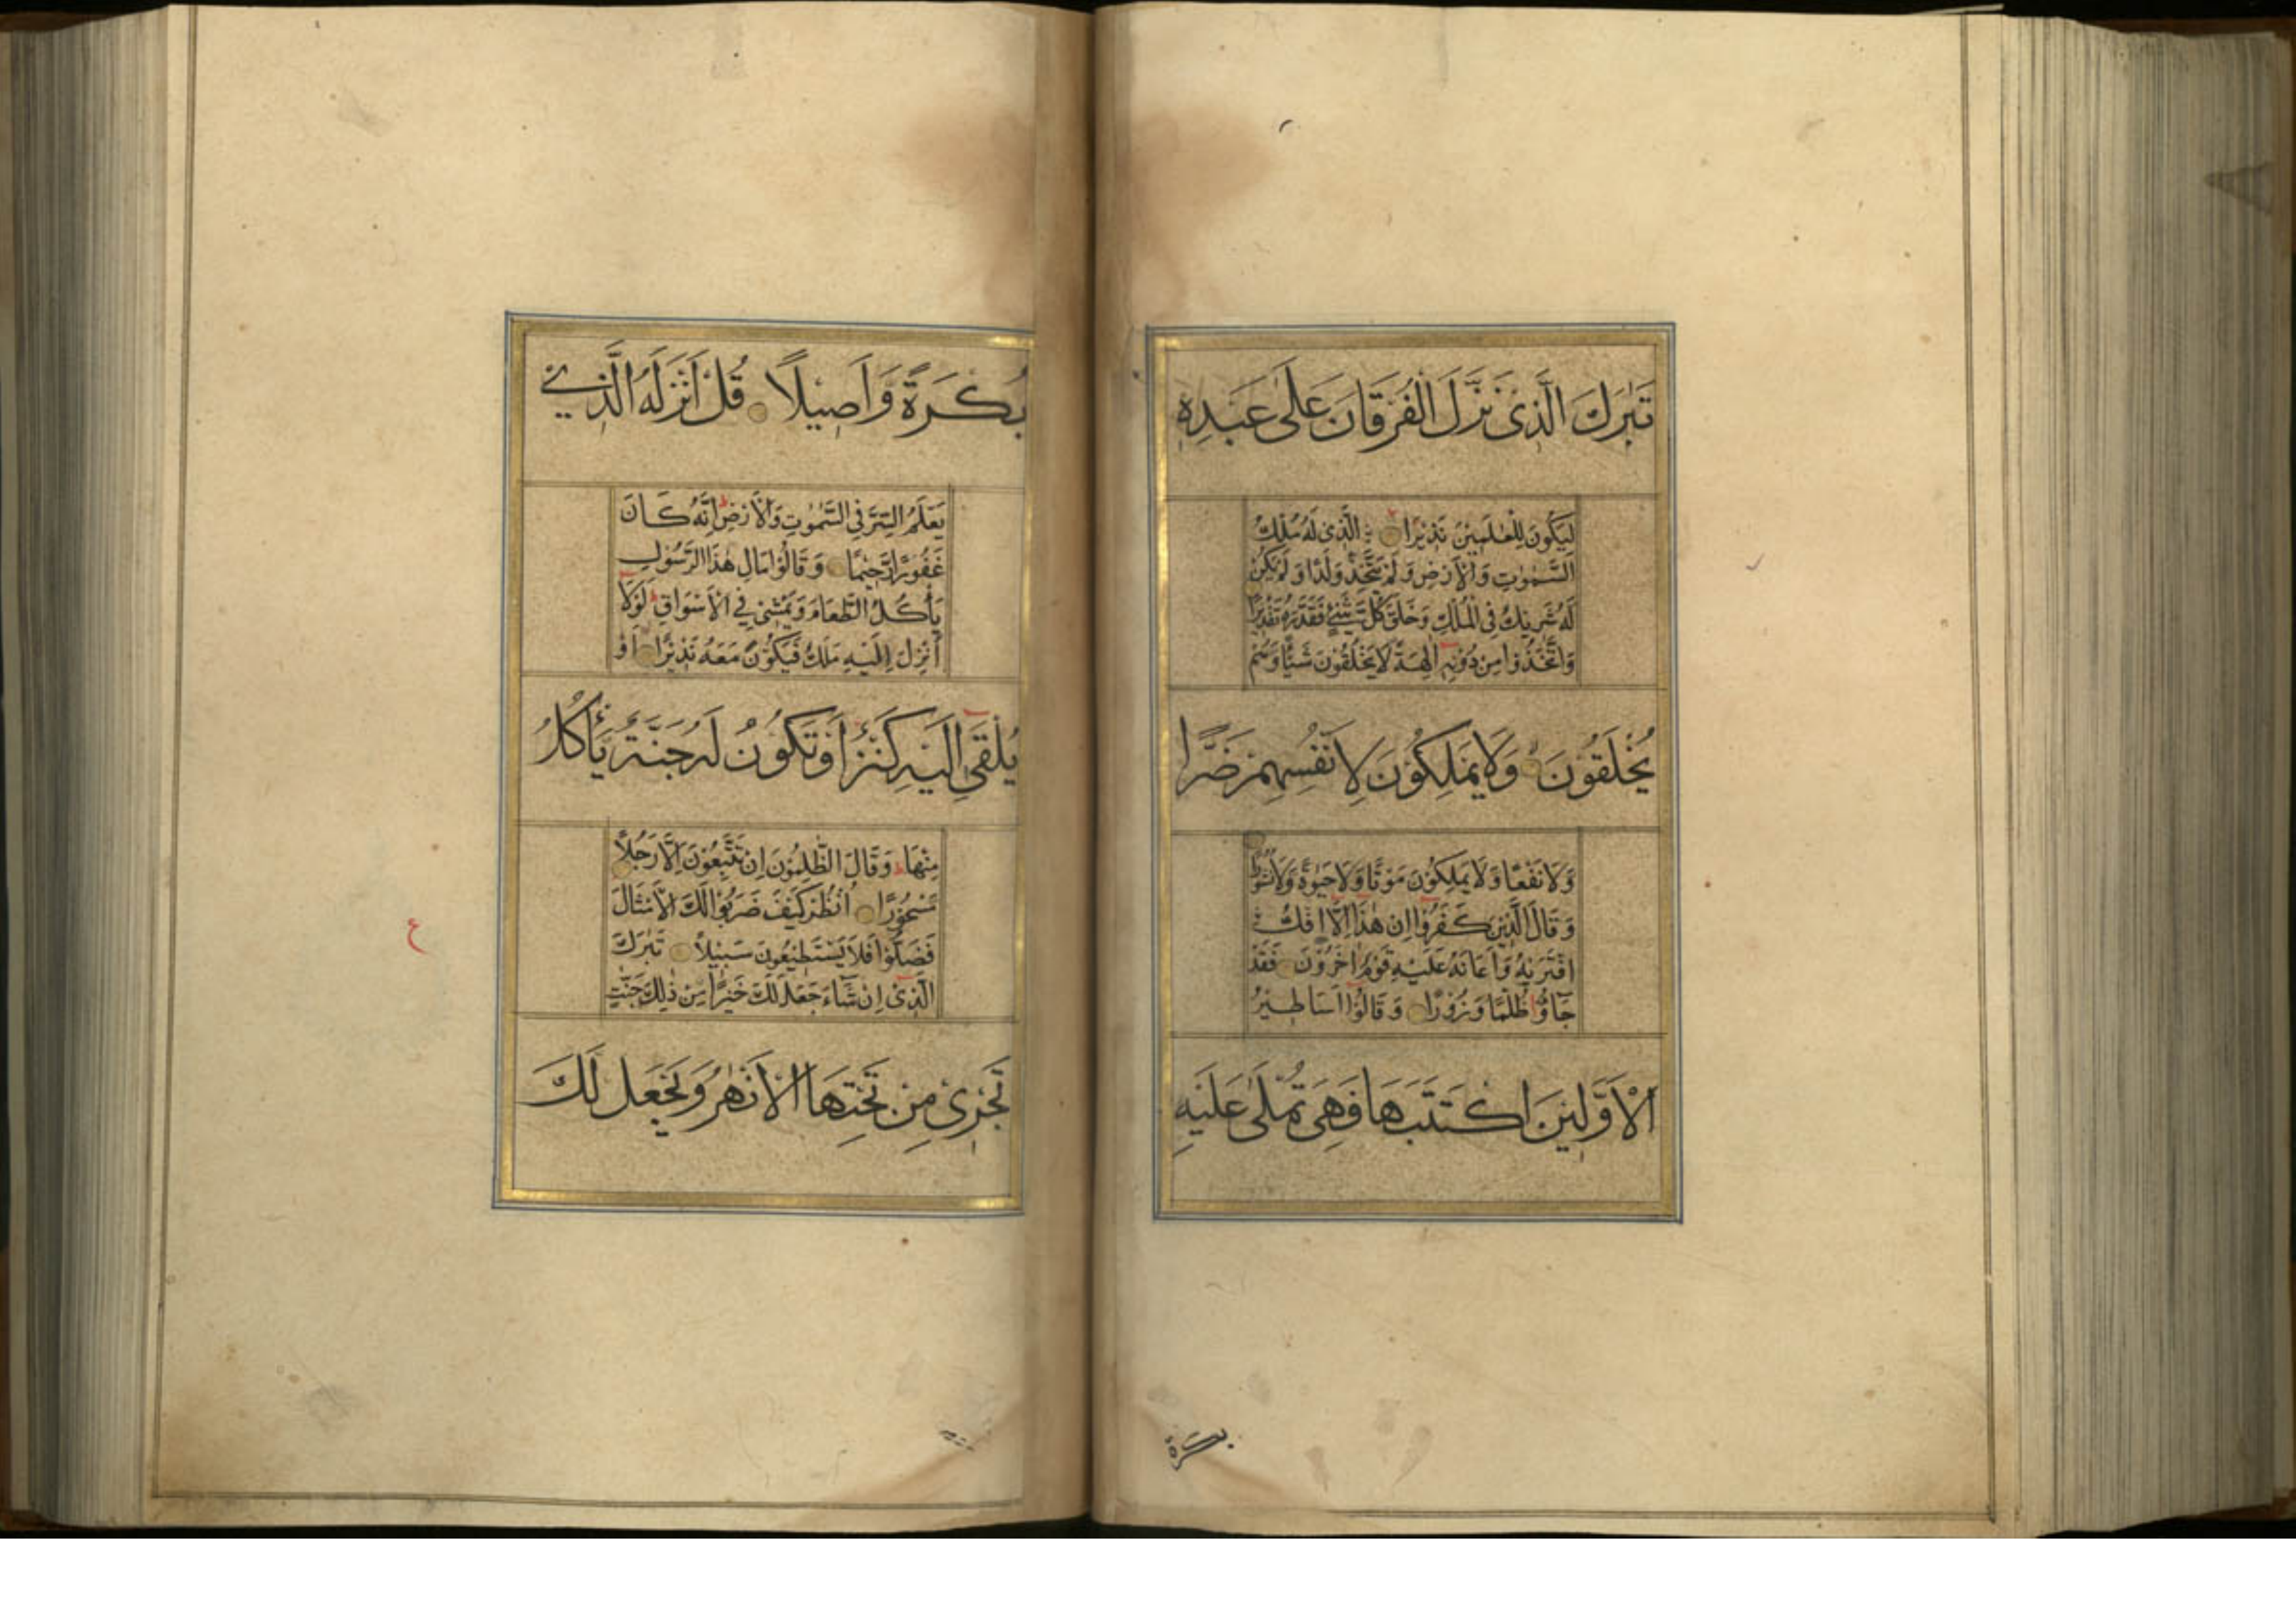 تَبٰرَكَ الَّذِىْ نَزَّلَ الْفُرْقَانَ عَلٰى عَبْدِهٖ
لِيَكُوْنَ لِلْعٰلَمِيْنَ نَذِيْرًا الَّذِىْ لَهٗ مُلْكُ
السَّمٰوٰتِ وَالْاَرْضِ وَلَمْ يَتَّخِذْ وَلَدًا وَلَمْ يَكُنْ
لَهٗ شَرِيْكٌ فِى الْمُلْكِ وَخَلَقَ كُلَّ شَيْءٍ فَقَدَّرَهٗ تَقْدِيْرًا
وَاتَّخَذُوْا مِنْ دُوْنِهٖٓ اٰلِهَةً لَا يَخْلُقُوْنَ شَيْئًا وَهُمْ
يُخْلَقُوْنَ وَلَا يَمْلِكُوْنَ لِاَنْفُسِهِمْ ضَرًّا
وَلَا نَفْعًا وَلَا يَمْلِكُوْنَ مَوْتًا وَلَا حَيٰوةً وَلَا نُشُوْرًا
وَقَالَ الَّذِيْنَ كَفَرُوْٓا اِنْ هٰذَآ اِلَّآ اِفْكُ
افْتَرٰىهُ وَاَعَانَهٗ عَلَيْهِ قَوْمٌ اٰخَرُوْنَ فَقَدْ
جَآؤُ ظُلْمًا وَزُوْرًا وَقَالُوْٓا اَسَاطِيْرُ
الْاَوَّلِيْنَ اكْتَتَبَهَا فَهِىَ تُمْلٰى عَلَيْهِ
بكرة
بُكْرَةً وَاَصِيْلًا قُلْ اَنْزَلَهُ الَّذِيْ
يَعْلَمُ السِّرَّ فِى السَّمٰوٰتِ وَالْاَرْضِ اِنَّهٗ كَانَ
غَفُوْرًا رَّحِيْمًا وَقَالُوْا مَالِ هٰذَا الرَّسُوْلِ
يَأْكُلُ الطَّعَامَ وَيَمْشِىْ فِي الْاَسْوَاقِ لَوْلَآ
اُنْزِلَ اِلَيْهِ مَلَكٌ فَيَكُوْنَ مَعَهٗ نَذِيْرًا اَوْ
يُلْقٰٓى اِلَيْهِ كَنْزٌ اَوْ تَكُوْنُ لَهٗ جَنَّةٌ يَّأْكُلُ
مِنْهَا وَقَالَ الظّٰلِمُوْنَ اِنْ تَتَّبِعُوْنَ اِلَّا رَجُلًا
مَّسْحُوْرًا اُنْظُرْ كَيْفَ ضَرَبُوْا لَكَ الْاَمْثَالَ
فَضَلُّوْا فَلَا يَسْتَطِيْعُوْنَ سَبِيْلًا تَبٰرَكَ
الَّذِىْٓ اِنْ شَآءَ جَعَلَ لَكَ خَيْرًا مِّنْ ذٰلِكَ جَنّٰتٍ
تَجْرِىْ مِنْ تَحْتِهَا الْاَنْهٰرُ وَيَجْعَلْ لَكَ
ع